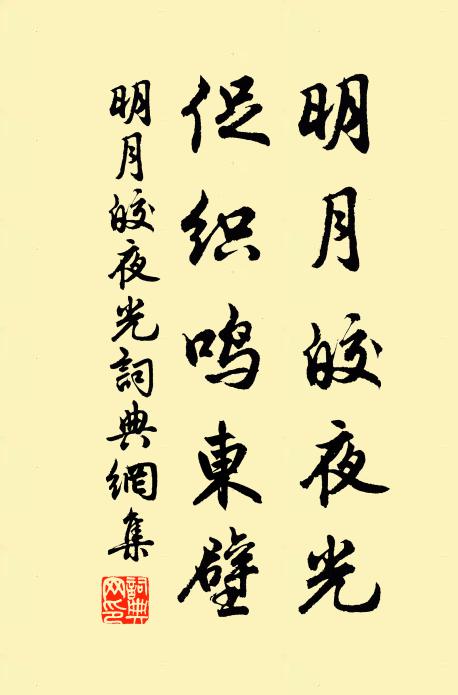 明月皎夜光
促织鸣東壁
明月皎夜光詞典網集
詞典網印